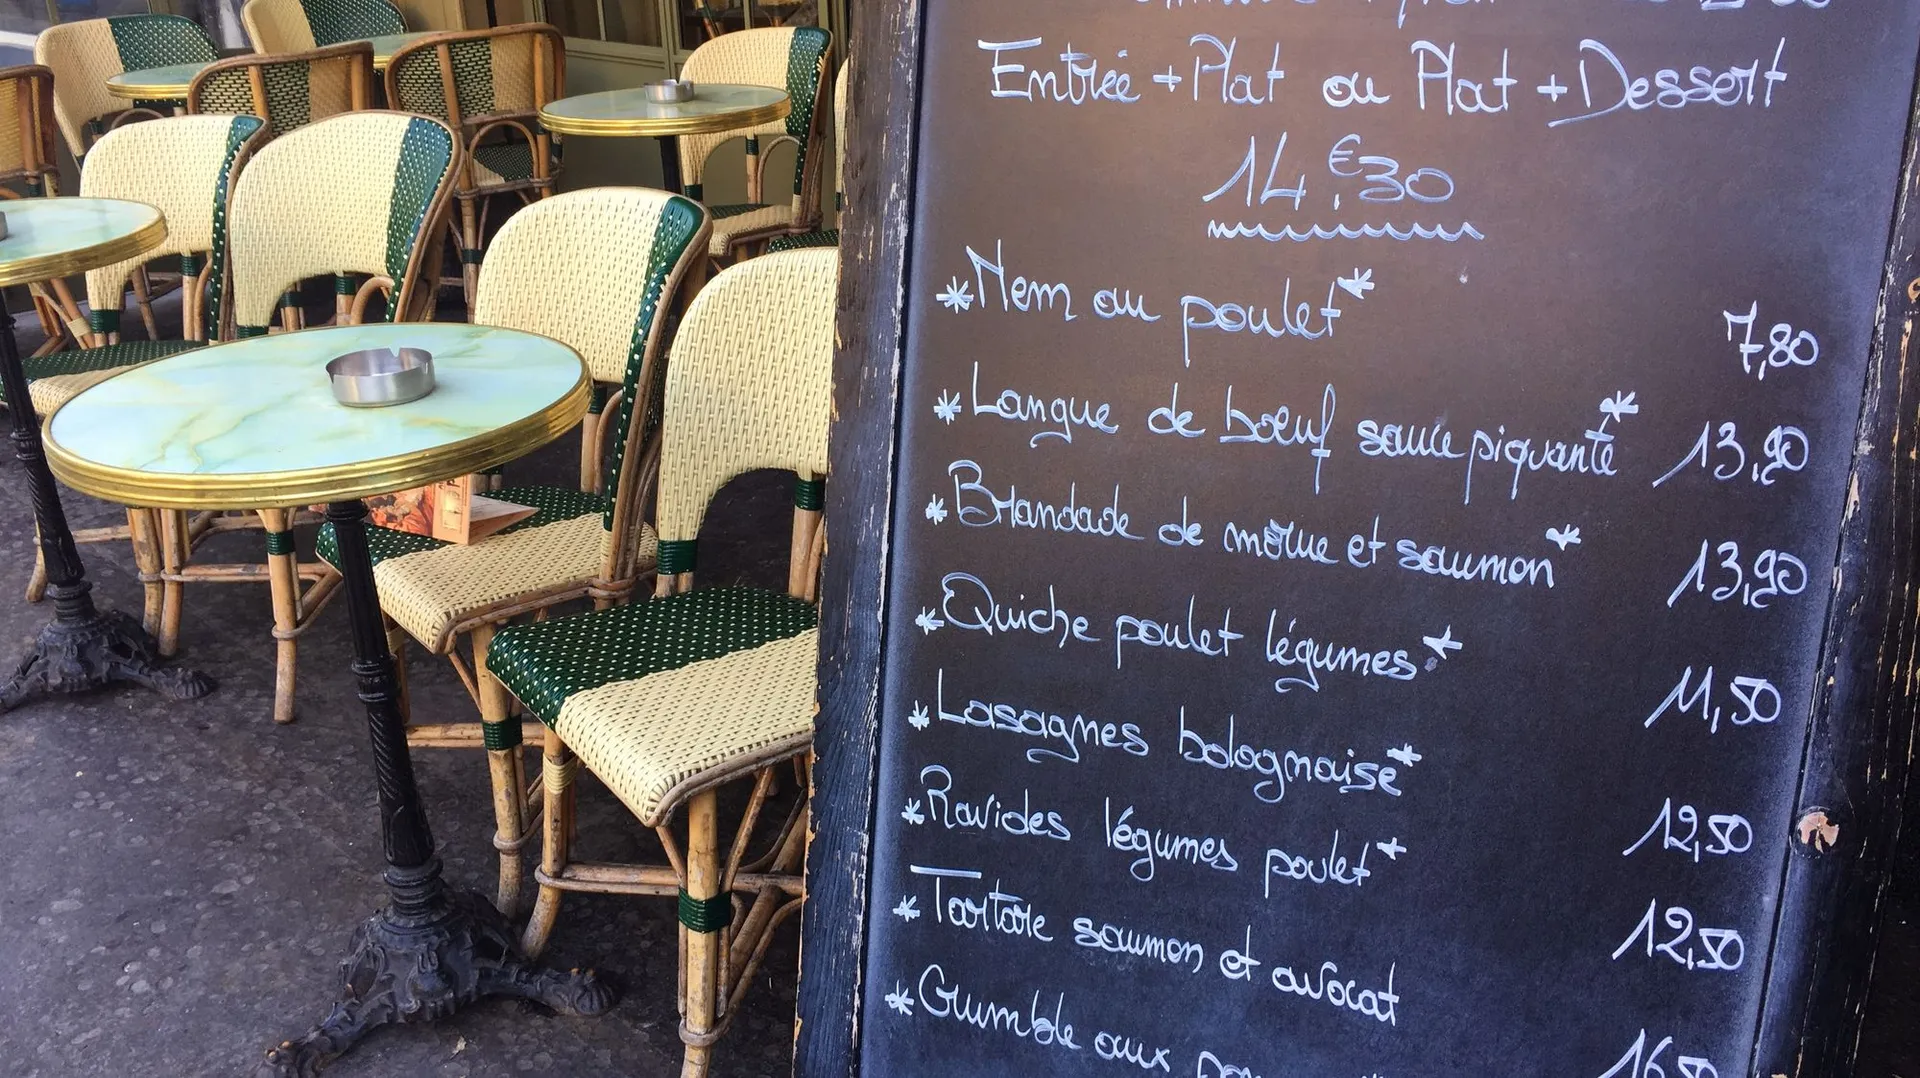 Entrée + Plat ou Plat + Dessert
14,€30
*Nem au poulet* 7,80
*Langue de bœuf sauce piquante* 13,90
*Brandade de morue et saumon* 13,90
*Quiche poulet légumes* 11,50
*Lasagnes bolognaise* 12,50
*Ravioles légumes poulet* 12,50
*Tartare saumon et avocat 16,50
*Crumble aux